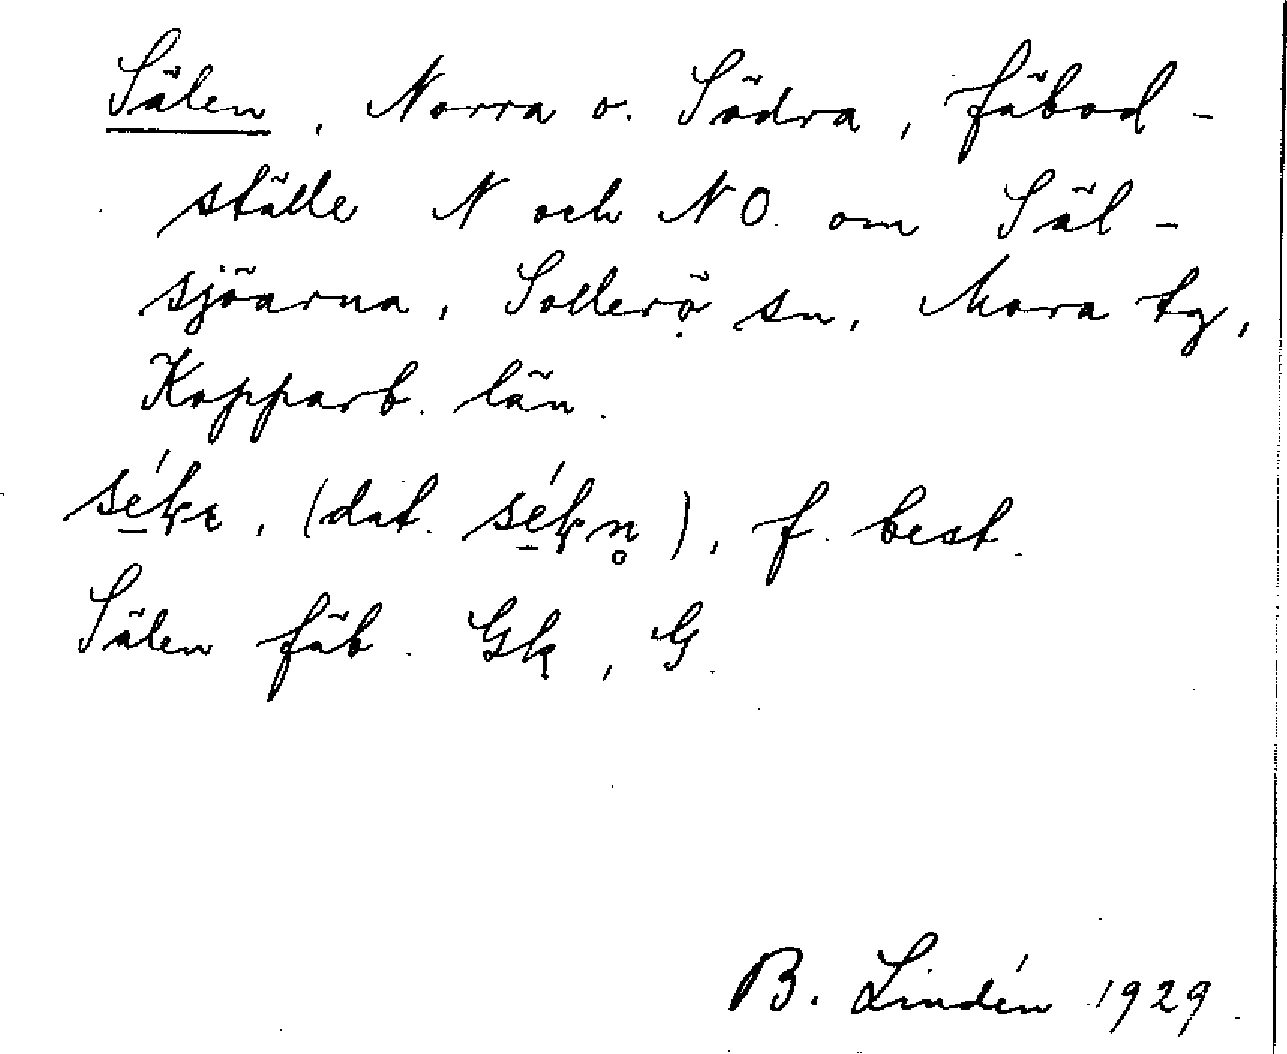 Sälen, Norra o. Södra, fäbod-
ställe N och NO. om Säl-
sjöarna, Sollerö sn, Mora tg,
Kopparb. län.
(dat. ), f. best.
Sälen fäb. Gk, G.
B. Lindén 1929.